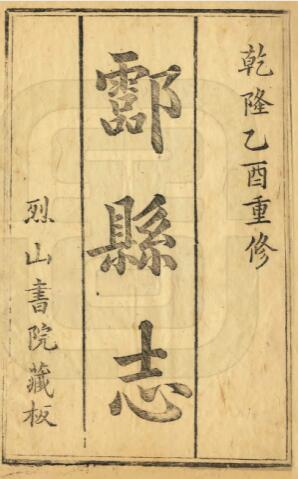 乾隆乙酉重修
酃縣志
烈山書院藏板